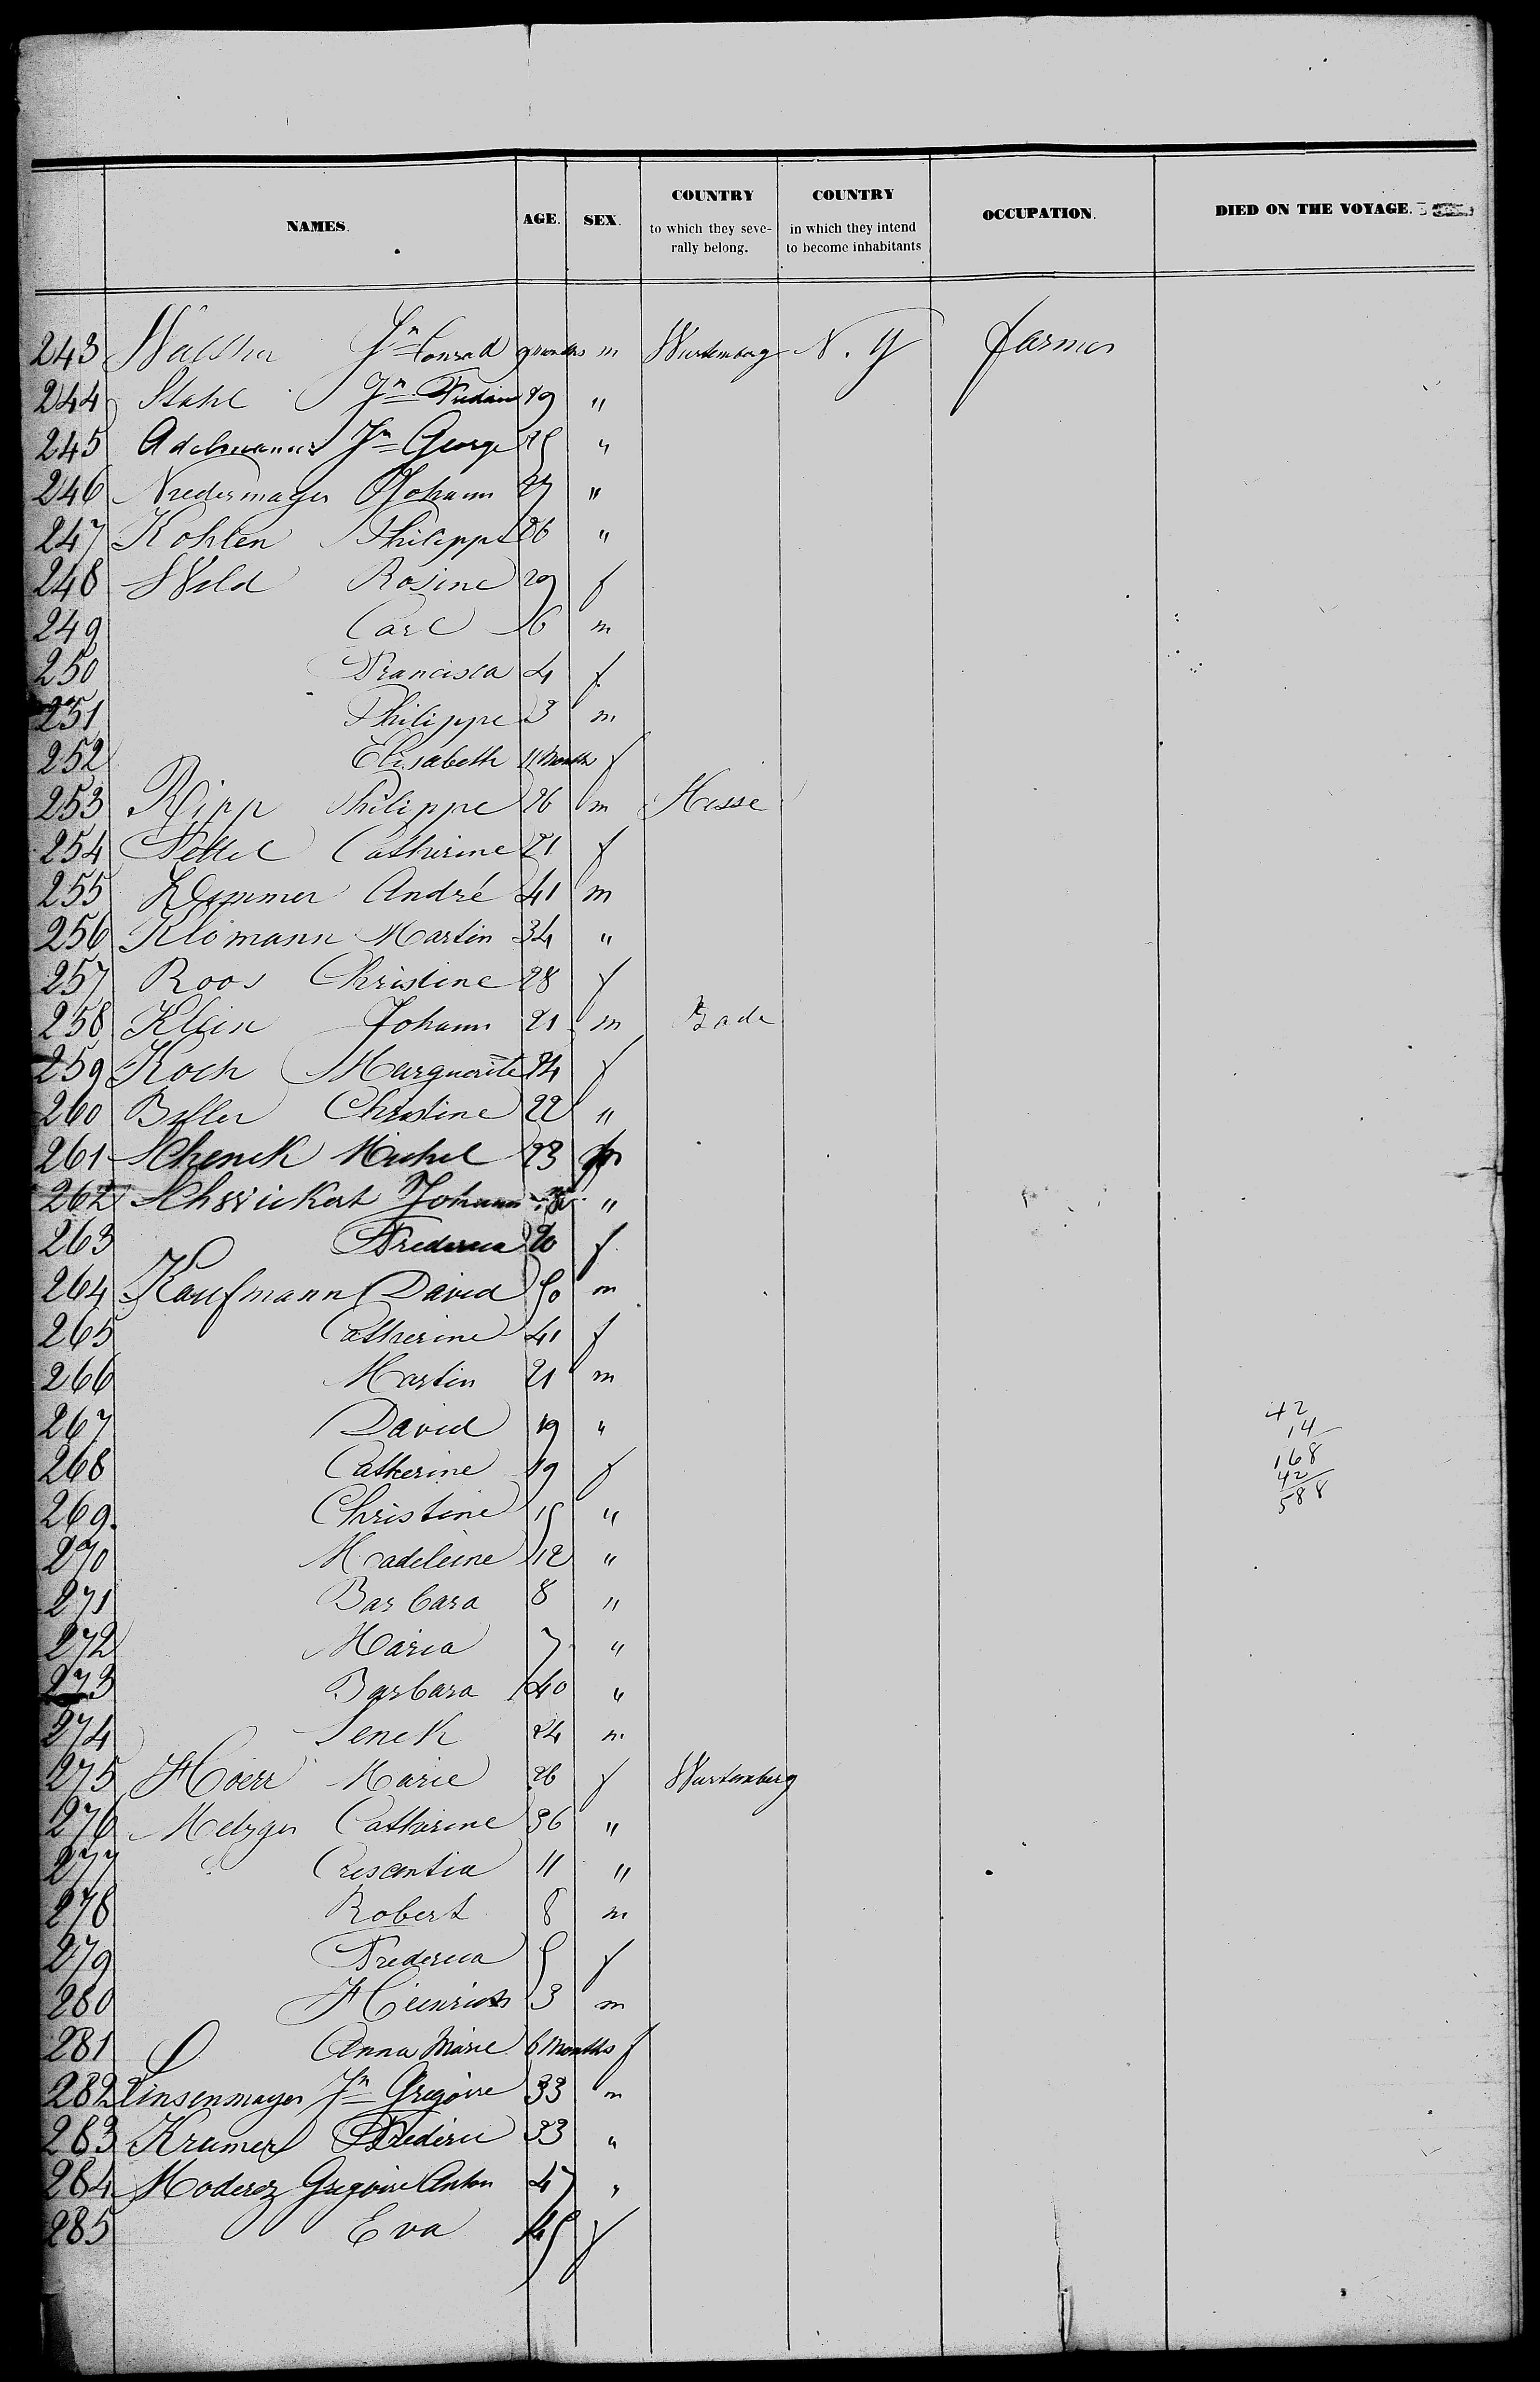 NAMES. AGE. SEX. COUNTRY to which they seve-rally belong. COUNTRY in which they intend to become inhabitants OCCUPATION. DIED ON THE VOYAGE.
243 Jn Conrad 9 months m Wurtemberg N. Y farmer
244 Stahl Jn 19 "
245 Adelmann Jn George "
246 Niedermayer Johann 27 "
247 Kohlen Philippe 26 "
248 Wild Rosine 29 f
249 Carl 6 m
250 Francisca 4 f
251 Philippe 3 m
252 Elisabeth 11 Months f
253 Ripp Philippe 26 m Hesse
254 Settel Catherine 21 f
255 André 41 m
256 Klomann Martin 34 "
257 Roos Christine 28 f
258 Klein Johann 21 m Bade
259 Koch Marguerite 24 f
260 Christine 22 "
261 Schenck Michel 23 m
262 Johann "
263 Frederica 20 f
264 Kaufmann David 50 m
265 Catherine 41 f
266 Martin 21 m
267 David 19 "
268 Catherine 19 f
269 Christine 15 "
270 Madeleine 12 "
271 Barbara 8 "
272 Maria 7 "
273 Barbara 40 "
274 24 m
275 Hoerr Marie 26 f Wurtemberg
276 Metzger Catherine 36 "
277 Crescentia 11 "
278 Robert 8 m
279 Frederica 5 f
280 Heinrich 3 m
281 Anna Marie 6 Months f
282 Linsenmayer Jn Gregoire 33 m
283 Kramer Frederic 33 "
284 Moderez Gregoire Anton 47 "
285 Eva 45 f
42
14
168
42
588